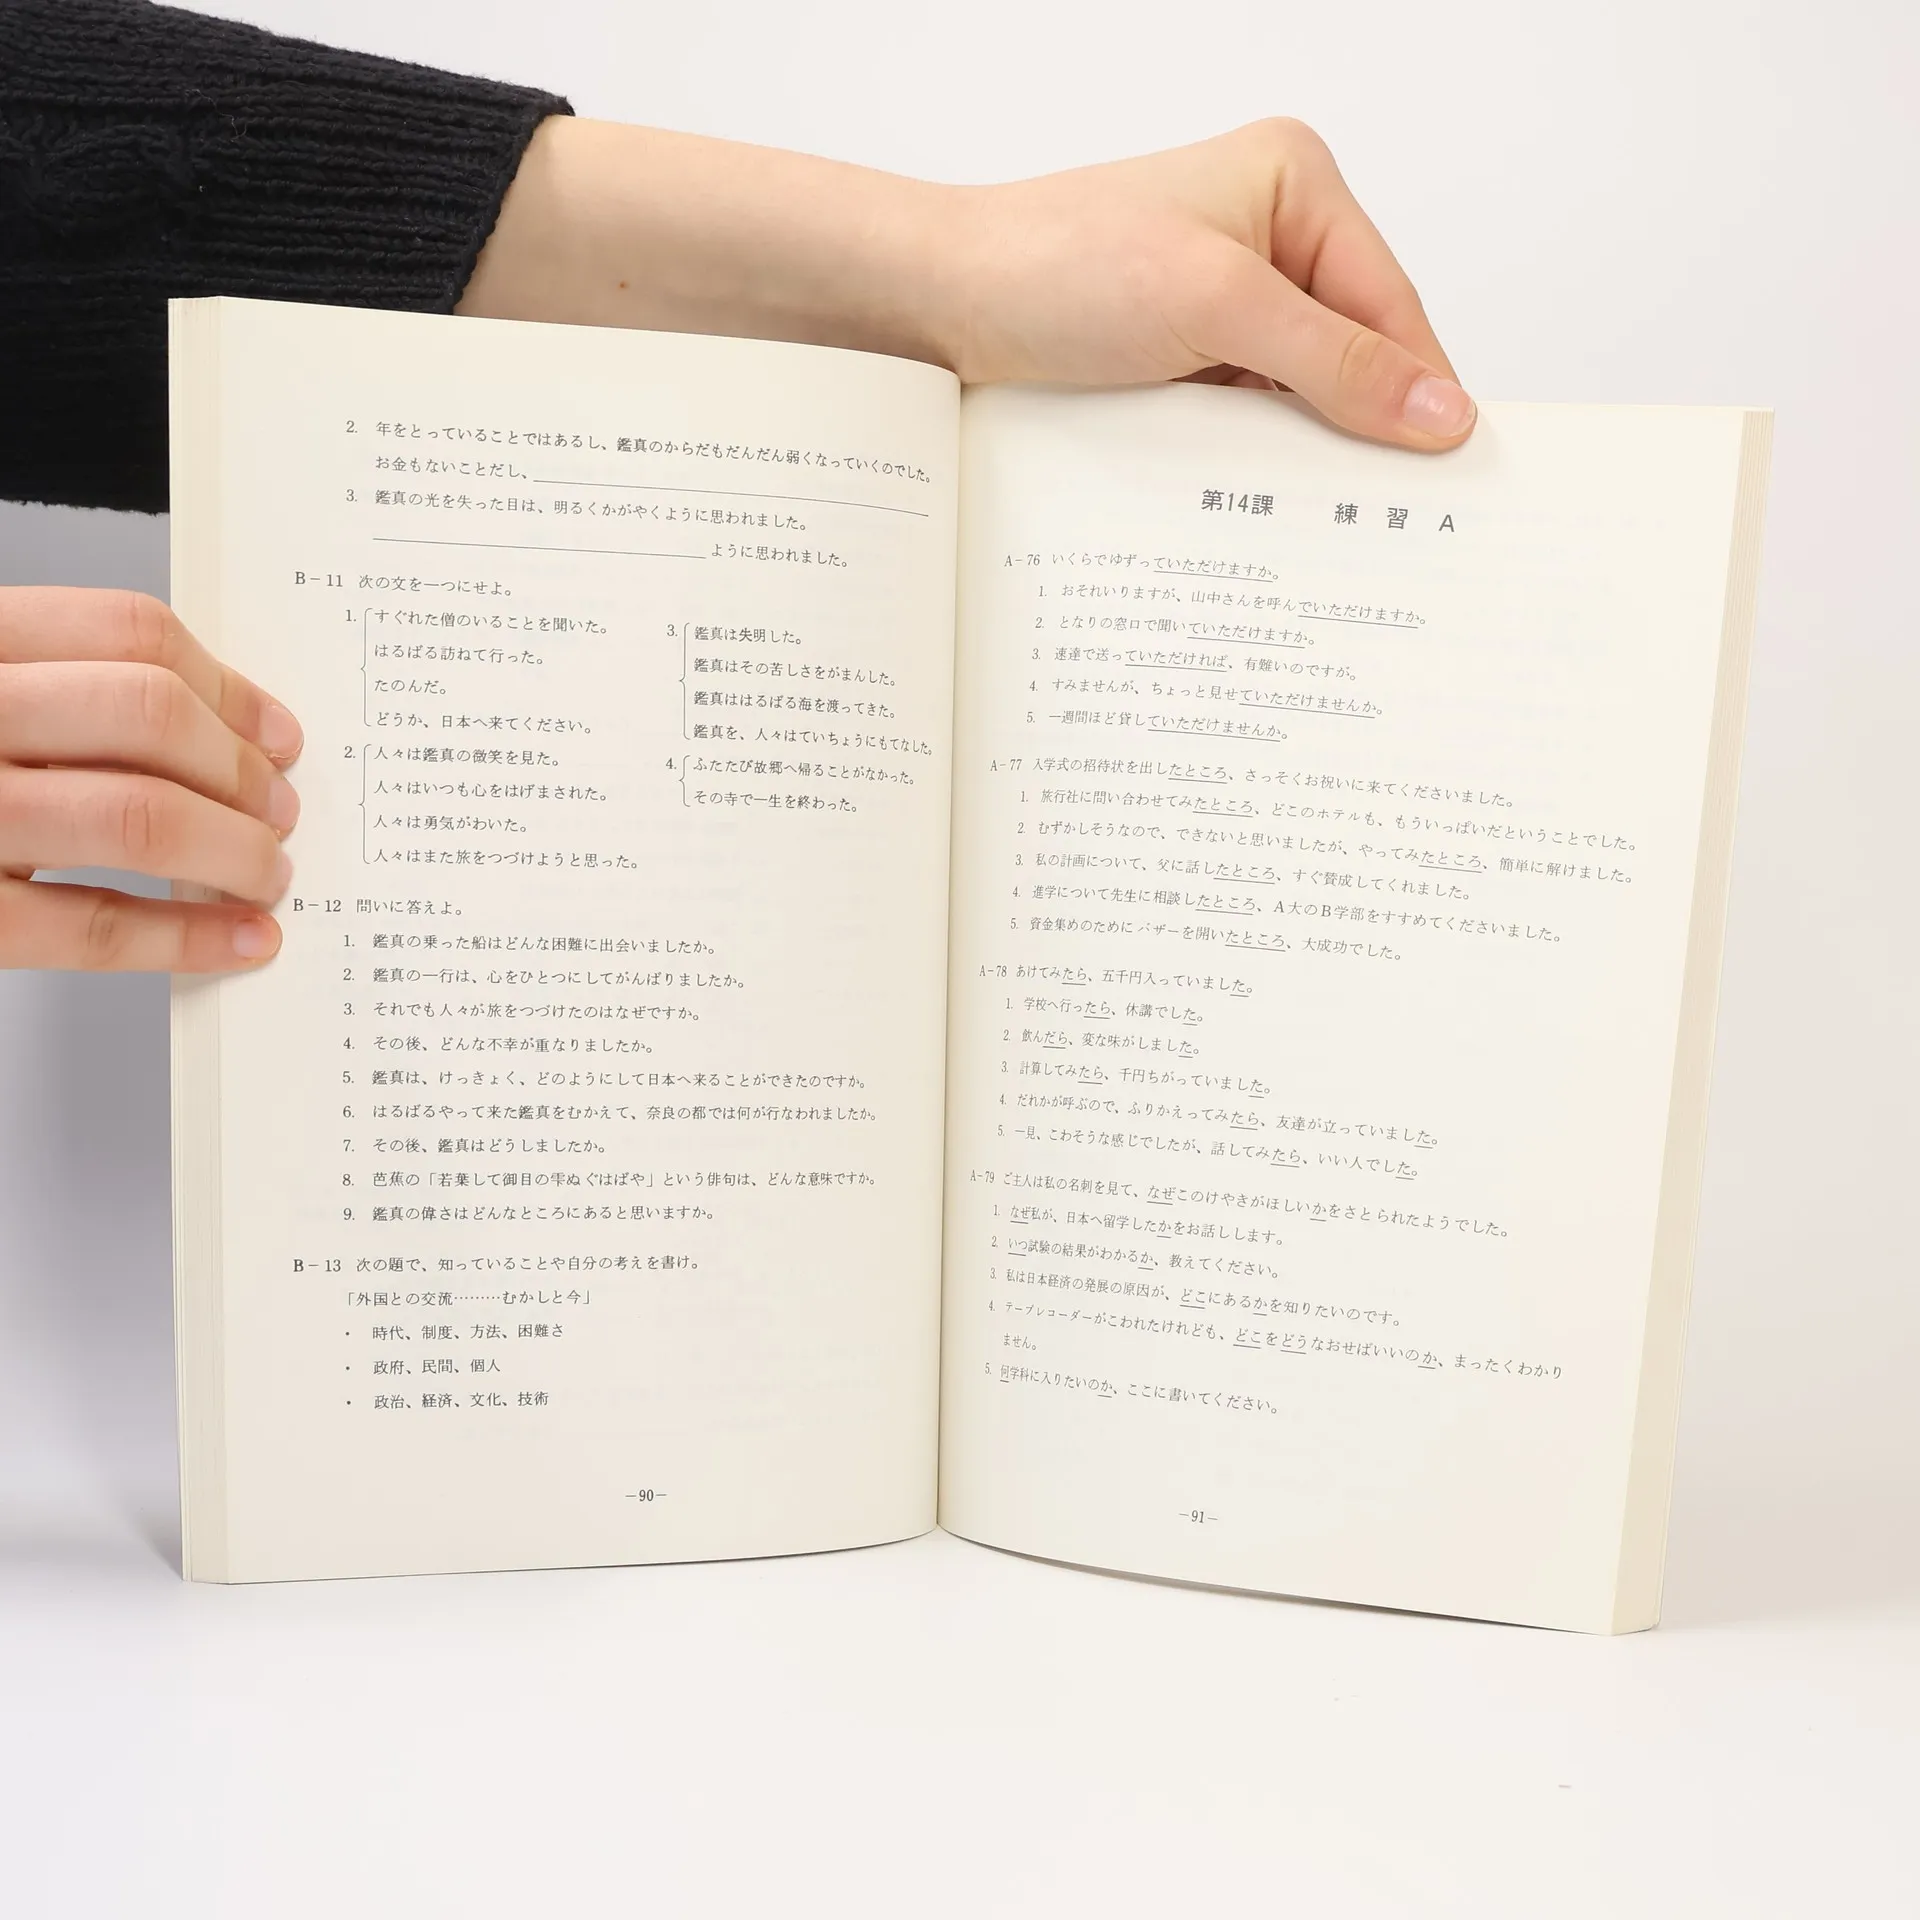 2. 年をとっていることではあるし、鑑真のからだもだんだん弱くなっていくのでした。
お金もないことだし、
3. 鑑真の光を失った目は、明るくかがやくように思われました。
ように思われました。
B－11 次の文を一つにせよ。
1. すぐれた僧のいることを聞いた。
はるばる訪ねて行った。
たのんだ。
どうか、日本へ来てください。
2. 人々は鑑真の微笑を見た。
人々はいつも心をはげまされた。
人々は勇気がわいた。
人々はまた旅をつづけようと思った。
3. 鑑真は失明した。
鑑真はその苦しさをがまんした。
鑑真ははるばる海を渡ってきた。
鑑真を、人々はていちょうにもてなした。
4. ふたたび故郷へ帰ることがなかった。
その寺で一生を終わった。
B－12 問いに答えよ。
1. 鑑真の乗った船はどんな困難に出会いましたか。
2. 鑑真の一行は、心をひとつにしてがんばりましたか。
3. それでも人々が旅をつづけたのはなぜですか。
4. その後、どんな不幸が重なりましたか。
5. 鑑真は、けっきょく、どのようにして日本へ来ることができたのですか。
6. はるばるやって来た鑑真をむかえて、奈良の都では何が行なわれましたか。
7. その後、鑑真はどうしましたか。
8. 芭蕉の「若葉して御目の雫ぬぐはばや」という俳句は、どんな意味ですか。
9. 鑑真の偉さはどんなところにあると思いますか。
B－13 次の題で、知っていることや自分の考えを書け。
「外国との交流………むかしと今」
・ 時代、制度、方法、困難さ
・ 政府、民間、個人
・ 政治、経済、文化、技術
—90—
第14課 練習A
A－76 いくらでゆずっていただけますか。
1. おそれいりますが、山中さんを呼んでいただけますか。
2. となりの窓口で聞いていただけますか。
3. 速達で送っていただければ、有難いのですが。
4. すみませんが、ちょっと見せていただけませんか。
5. 一週間ほど貸していただけませんか。
A－77 入学式の招待状を出したところ、さっそくお祝いに来てくださいました。
1. 旅行社に問い合わせてみたところ、どこのホテルも、もういっぱいだということでした。
2. むずかしそうなので、できないと思いましたが、やってみたところ、簡単に解けました。
3. 私の計画について、父に話したところ、すぐ賛成してくれました。
4. 進学について先生に相談したところ、A大のB学部をすすめてくださいました。
5. 資金集めのためにバザーを開いたところ、大成功でした。
A－78 あけてみたら、五千円入っていました。
1. 学校へ行ったら、休講でした。
2. 飲んだら、変な味がしました。
3. 計算してみたら、千円ちがっていました。
4. だれかが呼ぶので、ふりかえってみたら、友達が立っていました。
5. 一見、こわそうな感じでしたが、話してみたら、いい人でした。
A－79 ご主人は私の名刺を見て、なぜこのけやきがほしいかをさとられたようでした。
1. なぜ私が、日本へ留学したかをお話しします。
2. いつ試験の結果がわかるか、教えてください。
3. 私は日本経済の発展の原因が、どこにあるかを知りたいのです。
4. テープレコーダーがこわれたけれども、どこをどうなおせばいいのか、まったくわかり
ません。
5. 何学科に入りたいのか、ここに書いてください。
—91—